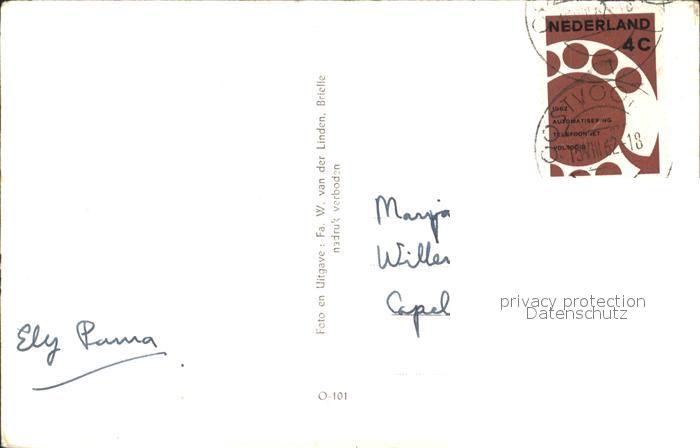 NEDERLAND
4C
1962
AUTOMATISERING
TELEFOONNET
VOLTOOID
OOSTVOO
13 VIII 62-18
Foto en Uitgave: Fa. W. van der Linden, Brielle
nadruk verboden
Marja
Willem
Capel
privacy protection
Datenschutz
Ely Pama
O-101